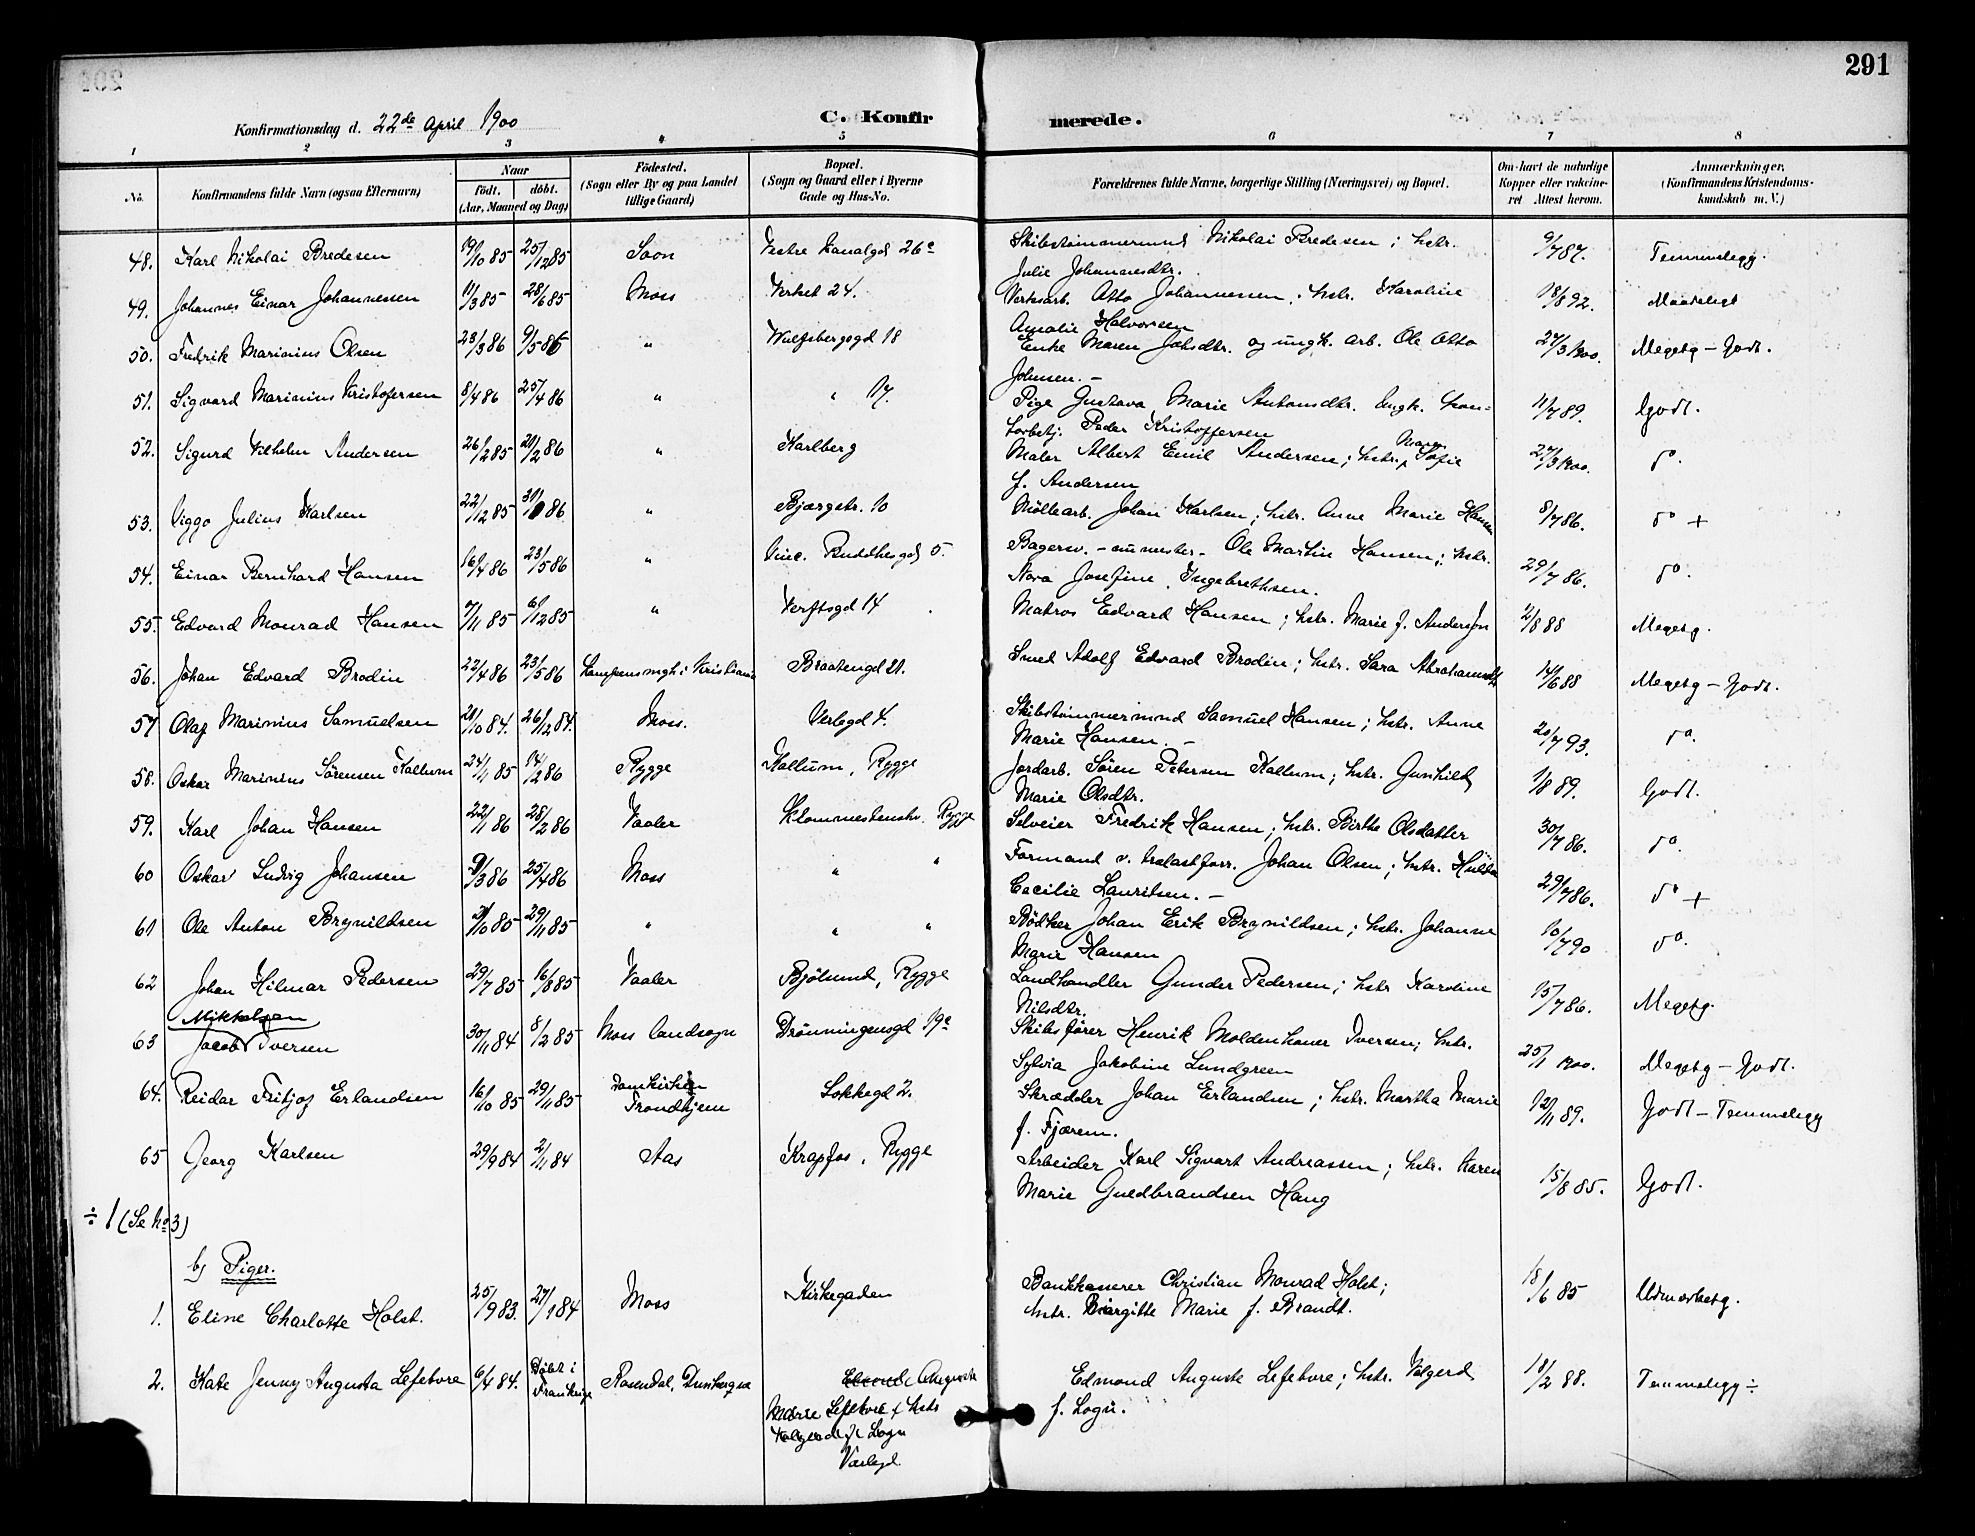 291
Konfirmationsdag d. 22de April 1900
C. Konfirmerede.
1 2 3 4 5 6 7 8
No. Konfirmandens fulde Navn (ogsaa Efternavn) Naar født. døbt. (Aar, Maaned og Dag) Fødested. (Sogn eller By og paa Landet tillige Gaard) Bopæl. (Sogn og Gaard eller i Byerne Gade og Hus-No. Forældrenes fulde Navne, borgerlige Stilling (Næringsvei) og Bopæl. Om havt de naturlige Kopper eller vakcineret Attest herom. Anmærkninger, (Konfirmandens Kristendomskundskab m. V.)
48. Karl Nikolai Bredesen 19/10 85 25/12 85 Soon Vestre Kanalgd 26c Skibstømmermnd Nikolai Bredesen; hstr. 9/7 87. Temmelegg.
Julie Johannesdtr.
49. Johannes Einar Johannessen 11/3 85 28/6 85 Moss Verket 24. Verksarb. Otto Johannessen; hstr. Karoline 18/8 92. Maadeligt
Amalie Halvorsen
50. Fredrik Marinius Olsen 23/3 86 9/5 86 " Wulfsbergsgd 18 Enke Maren Johsdtr. og ungk. arb. Ole Otto 27/3 1900. Megetg - Godt.
Johnsen. -
51. Sigvard Marinius Kristofersen 8/4 86 25/4 86 " " 17. Pige Gustava Marie Antonsdtr. Ungk. kon- 11/7 89. Godt.
torbetj. Peder Kristoffersen
52. Sigurd Vilhelm Andersen 26/12 85 21/2 86 " Karlberg Maler Albert Emil Andersen; hstr. Maren Sofie 27/3 1900. do.
f. Andersen
53. Viggo Julius Karlsen 22/12 85 31/1 86 " Bjergstr. 10 Møllearb. Johan Karlsen; hstr. Anne Marie Hansen 8/7 86. do +
54. Einar Bernhard Hansen 16/4 86 23/5 86 " Vinc. Buddhesgd 5. Bagersv. - nu mester - Ole Martin Hansen; hstr. 29/7 86. do.
Nora Josefine Ingebrethsen.
55. Edvard Monrad Hansen 7/11 85 6/12 85 " Verftsgd 14 Matros Edvard Hansen; hstr. Marie f. Andersen 2/8 88 Megetg.
56. Johan Edvard Brodin 22/4 86 23/5 86 Kampensmgh i Kristiania Braatengd 21. Smed Adolf Edvard Brodin; hstr. Sara Abrahamsdtr 14/6 88 Megetg - Godt.
57 Olaf Marinius Samuelsen 21/10 84. 26/12 84. Moss. Verlegd 4. Skibstømmermnd Samuel Hansen; hstr. Anne 20/7 93. do.
Marie Hansen. -
58. Oskar Marinius Sørensen Kallum 24/11 85 14/2 86 Rygge Kallum, Rygge Jordarb. Søren Petersen Kallum; hstr. Gunhild 1/8 89. Godt.
Marie Olsdtr.
59. Karl Johan Hansen 22/1 86 28/2 86 Vaaler Klommestenshv. Rygge Selveier Fredrik Hansen; hstr. Birthe Olsdatter 30/7 86. do.
60 Oskar Ludvig Johansen 9/3 86 25/4 86 Moss " " Formand v. Johan Olsen; hstr. Hulda 29/7 86. do +
Cecilie Lauritsen. -
61 Ole Anton Brynildsen 3/10 85 29/11 85 " " " Bødker Johan Erik Brynildsen; hstr. Johanne 10/7 90 do.
Marie Hansen
62 Johan Hilmar Pedersen 29/7 85 16/8 85 Vaaler Bjølsund, Rygge Landhandler Gunder Pedersen; hstr Karoline 15/7 86. Megetg.
Nilsdtr.
63 Mikkelsen Jacob Iversen 30/11 84 8/2 85 Moss landsogn Dronningensgd 19c Skibsfører Henrik Moldenhauer Iversen; hstr. 25/1 1900. Megetg - Godt.
Sylvia Jakobine Lundgreen
64. Reidar Fritjof Erlandsen 16/10 85 29/11 85 Domkirken Trondhjem Løkkegd 2. Skrædder Johan Erlandsen; hstr. Martha Marie 12/11 89. Godt - Temmelegg
f. Fjærem.
65 Georg Karlsen 29/9 84 2/11 84 Aas Krapfos, Rygge Arbeider Karl Sigvart Andreassen; hstr. Karen 15/8 85. Godt.
Marie Guldbrandsen Haug
÷ 1 (Se No 3)
b) Piger.
1. Eline Charlotte Holst. 25/9 83. 27/1 84 Moss Kirkegaden Bankkasserer Christian Monrad Holst; 18/6 85 Udmærketg.
hstr. Birgitte Marie f. Brandt.
2. Kate Jenny Augusta Lefebvre 6/4 84. Døbt i Frankrige Rosendal, Dunkerque Edmond Auguste Lefebvre; hstr. Valgerd 18/2 88. Temmelegg ÷
Marie Lefebvre f. Logn.
Værlegd.